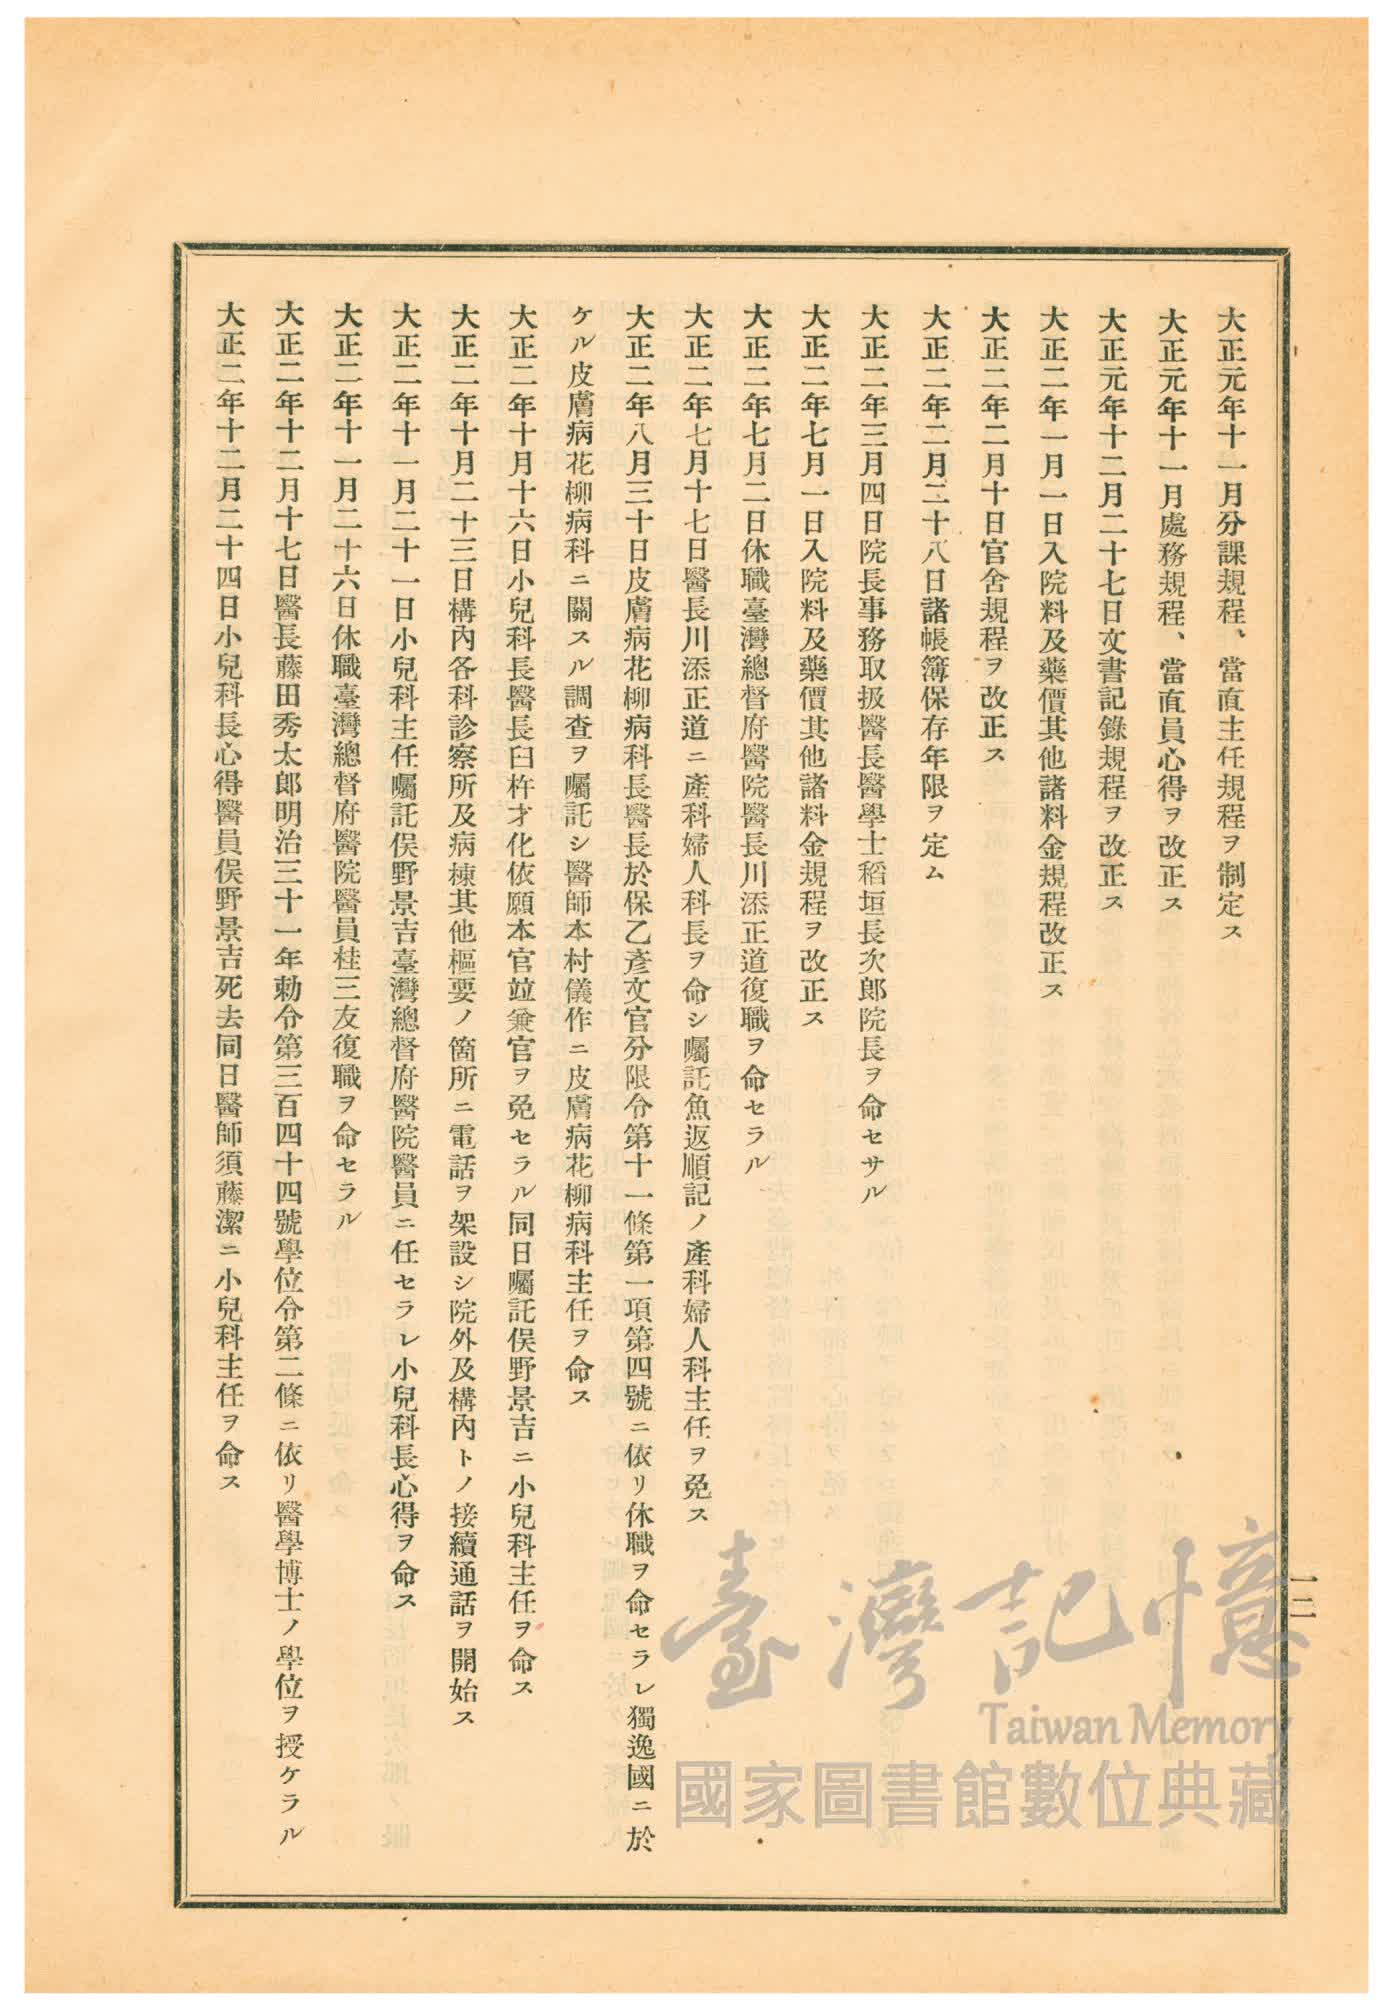 大正元年十一月分課規程、當直主任規程ヲ制定ス
大正元年十一月處務規程、當直員心得ヲ改正ス
大正元年十二月二十七日文書記錄規程ヲ改正ス
大正二年一月一日入院料及藥價其他諸料金規程改正ス
大正二年二月十日官舍規程ヲ改正ス
大正二年二月二十八日諸帳簿保存年限ヲ定ム
大正二年三月四日院長事務取扱醫長醫學士稻垣長次郎院長ヲ命セサル
大正二年七月一日入院料及藥價其他諸料金規程ヲ改正ス
大正二年七月二日休職臺灣總督府醫院醫長川添正道復職ヲ命セラル
大正二年七月十七日醫長川添正道ニ產科婦人科長ヲ命シ囑託魚返順記ノ產科婦人科主任ヲ免ス
大正二年八月三十日皮膚病花柳病科長醫長於保乙彥文官分限令第十一條第一項第四號ニ依リ休職ヲ命セラレ獨逸國ニ於
ケル皮膚病花柳病科ニ關スル調查ヲ囑託シ醫師本村儀作ニ皮膚病花柳病科主任ヲ命ス
大正二年十月十六日小兒科長醫長臼杵才化依願本官竝兼官ヲ免セラル同日囑託俣野景吉ニ小兒科主任ヲ命ス
大正二年十月二十三日構內各科診察所及病棟其他樞要ノ箇所ニ電話ヲ架設シ院外及構內トノ接續通話ヲ開始ス
大正二年十一月二十一日小兒科主任囑託俣野景吉臺灣總督府醫院醫員ニ任セラレ小兒科長心得ヲ命ス
大正二年十一月二十六日休職臺灣總督府醫院醫員桂三友復職ヲ命セラル
大正二年十二月十七日醫長藤田秀太郎明治三十一年勅令第三百四十四號學位令第二條ニ依リ醫學博士ノ學位ヲ授ケラル
大正二年十二月二十四日小兒科長心得醫員俣野景吉死去同日醫師須藤潔ニ小兒科主任ヲ命ス
一二
臺灣記憶
Taiwan Memory
國家圖書館數位典藏